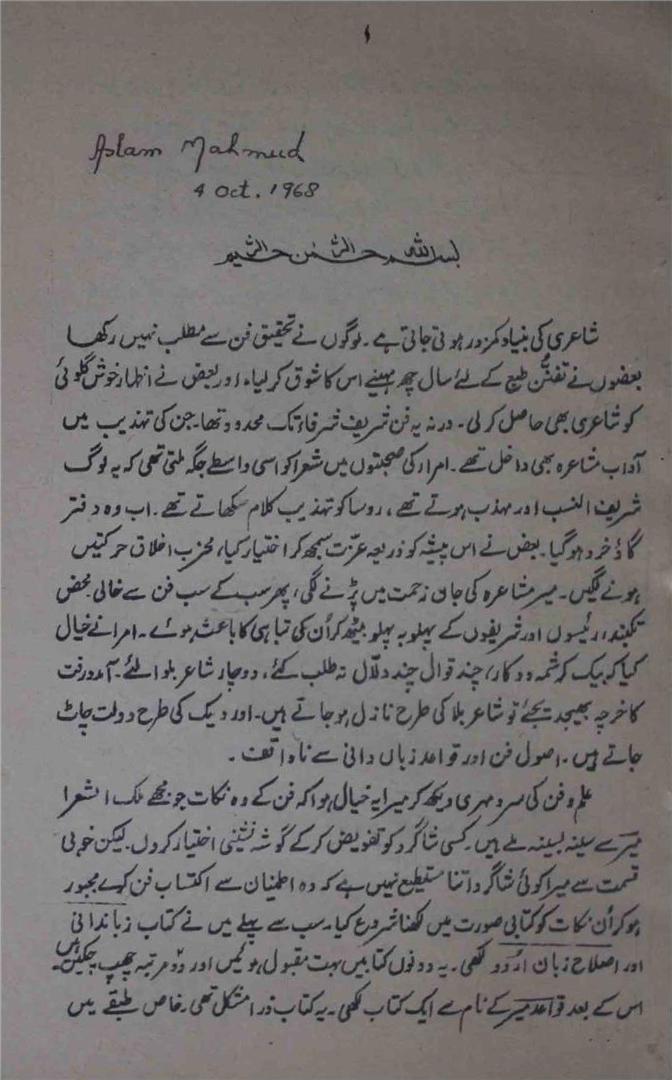 ۱
Aslam Mahmud
4 Oct. 1968
بسم اللہ الرحمٰن الرحیم
شاعری کی بنیاد کمزور ہوتی جاتی ہے۔ لوگوں نے تحقیق فن سے مطلب نہیں رکھا
بعضوں نے تفننِ طبع کے لئے سال چھ مہینے اس کا شوق کر لیا، اور بعض نے اظہار خوش گلوئی
کو شاعری بھی حاصل کر لی۔ ورنہ یہ فن شریف شرفاء تک محدود تھا۔ جن کی تہذیب میں
آداب مشاعرہ بھی داخل تھے۔ امراء کی صحبتوں میں شعرا کو اسی واسطے جگہ ملتی تھی کہ یہ لوگ
شریف النسب اور مہذب ہوتے تھے، روسا کو تہذیب کلام سکھاتے تھے۔ اب وہ دفتر
گاؤ خرد ہو گیا۔ بعض نے اس پیشہ کو ذریعہ عزت سمجھ کر اختیار کیا، مخرب اخلاق حرکتیں
ہونے لگیں۔ میر مشاعرہ کی جان زحمت میں پڑنے لگی، پھر سب کے سب فن سے خالی۔ محض
تکبند، رئیسوں اور شریفوں کے پہلو بہ پہلو بیٹھ کر اُن کی تباہی کا باعث ہوئے۔ امرا نے خیال
کیا کہ بیک کرشمہ دو کار، چند قوال چند دلّال نہ طلب کئے، دو چار شاعر بلوا لئے۔ آمد و رفت
کا خرچہ بھیجدیجئے تو شاعر بلا کی طرح نازل ہو جاتے ہیں۔ اور دیمک کی طرح دولت چاٹ
جاتے ہیں۔ اصول فن اور قواعد زباں دانی سے ناواقف۔
علم و فن کی سرد مہری دیکھ کر میرا یہ خیال ہوا کہ فن کے وہ نکات جو مجھے ملک الشعرا
میر سے سینہ بسینہ ملے ہیں۔ کسی شاگرد کو تفویض کر کے گوشہ نشینی اختیار کروں۔ لیکن خوبی
قسمت سے میرا کوئی شاگرد اتنا مستطیع نہیں ہے کہ وہ اطمنیان سے اکتساب فن کرے مجبور
ہو کر اُن نکات کو کتابی صورت میں لکھنا شروع کیا۔ سب سے پہلے میں نے کتاب زباندانی
اور اصلاح زبان اردو لکھی۔ یہ دونوں کتابیں بہت مقبول ہوئیں اور دو دو مرتبہ چھپ چکیں ہیں۔
اس کے بعد قواعد میر کے نام سے ایک کتاب لکھی۔ یہ کتاب ذرا مشکل تھی۔ خاص طبقے میں